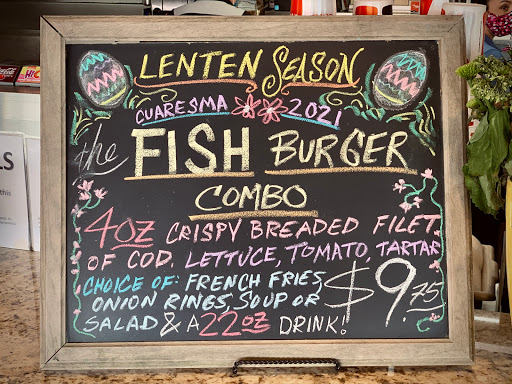 LENTEN SEASON
CUARESMA 2021
the FISH BURGER
COMBO
4OZ CRISPY BREADED FILET
OF COD, LETTUCE, TOMATO, TARTAR
CHOICE OF: FRENCH FRIES,
ONION RINGS, SOUP OR
SALAD & A 22OZ DRINK!
$9.75